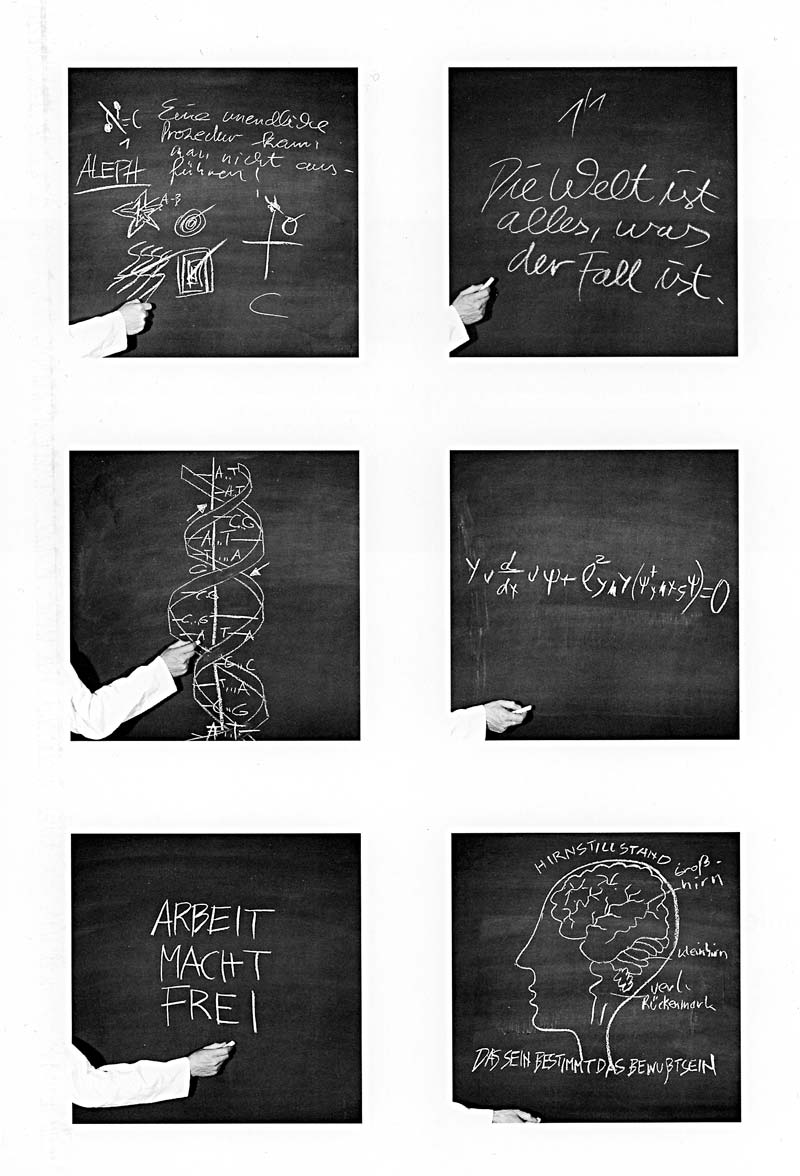 Eine unendliche
Prozedur kann
man nicht aus-
führen!
ALEPH
A-B
C
1
Die Welt ist
alles, was
der Fall ist.
A..T
A.T
C.G
A...T
T...A
C
C.G
C..G
A T A
G..C
T...A
C...G
A..T.
ARBEIT
MACHT
FREI
HIRNSTILLSTAND
Groß-
hirn
Kleinhirn
verl.
Rückenmark
DAS SEIN BESTIMMT DAS BEWUßTSEIN